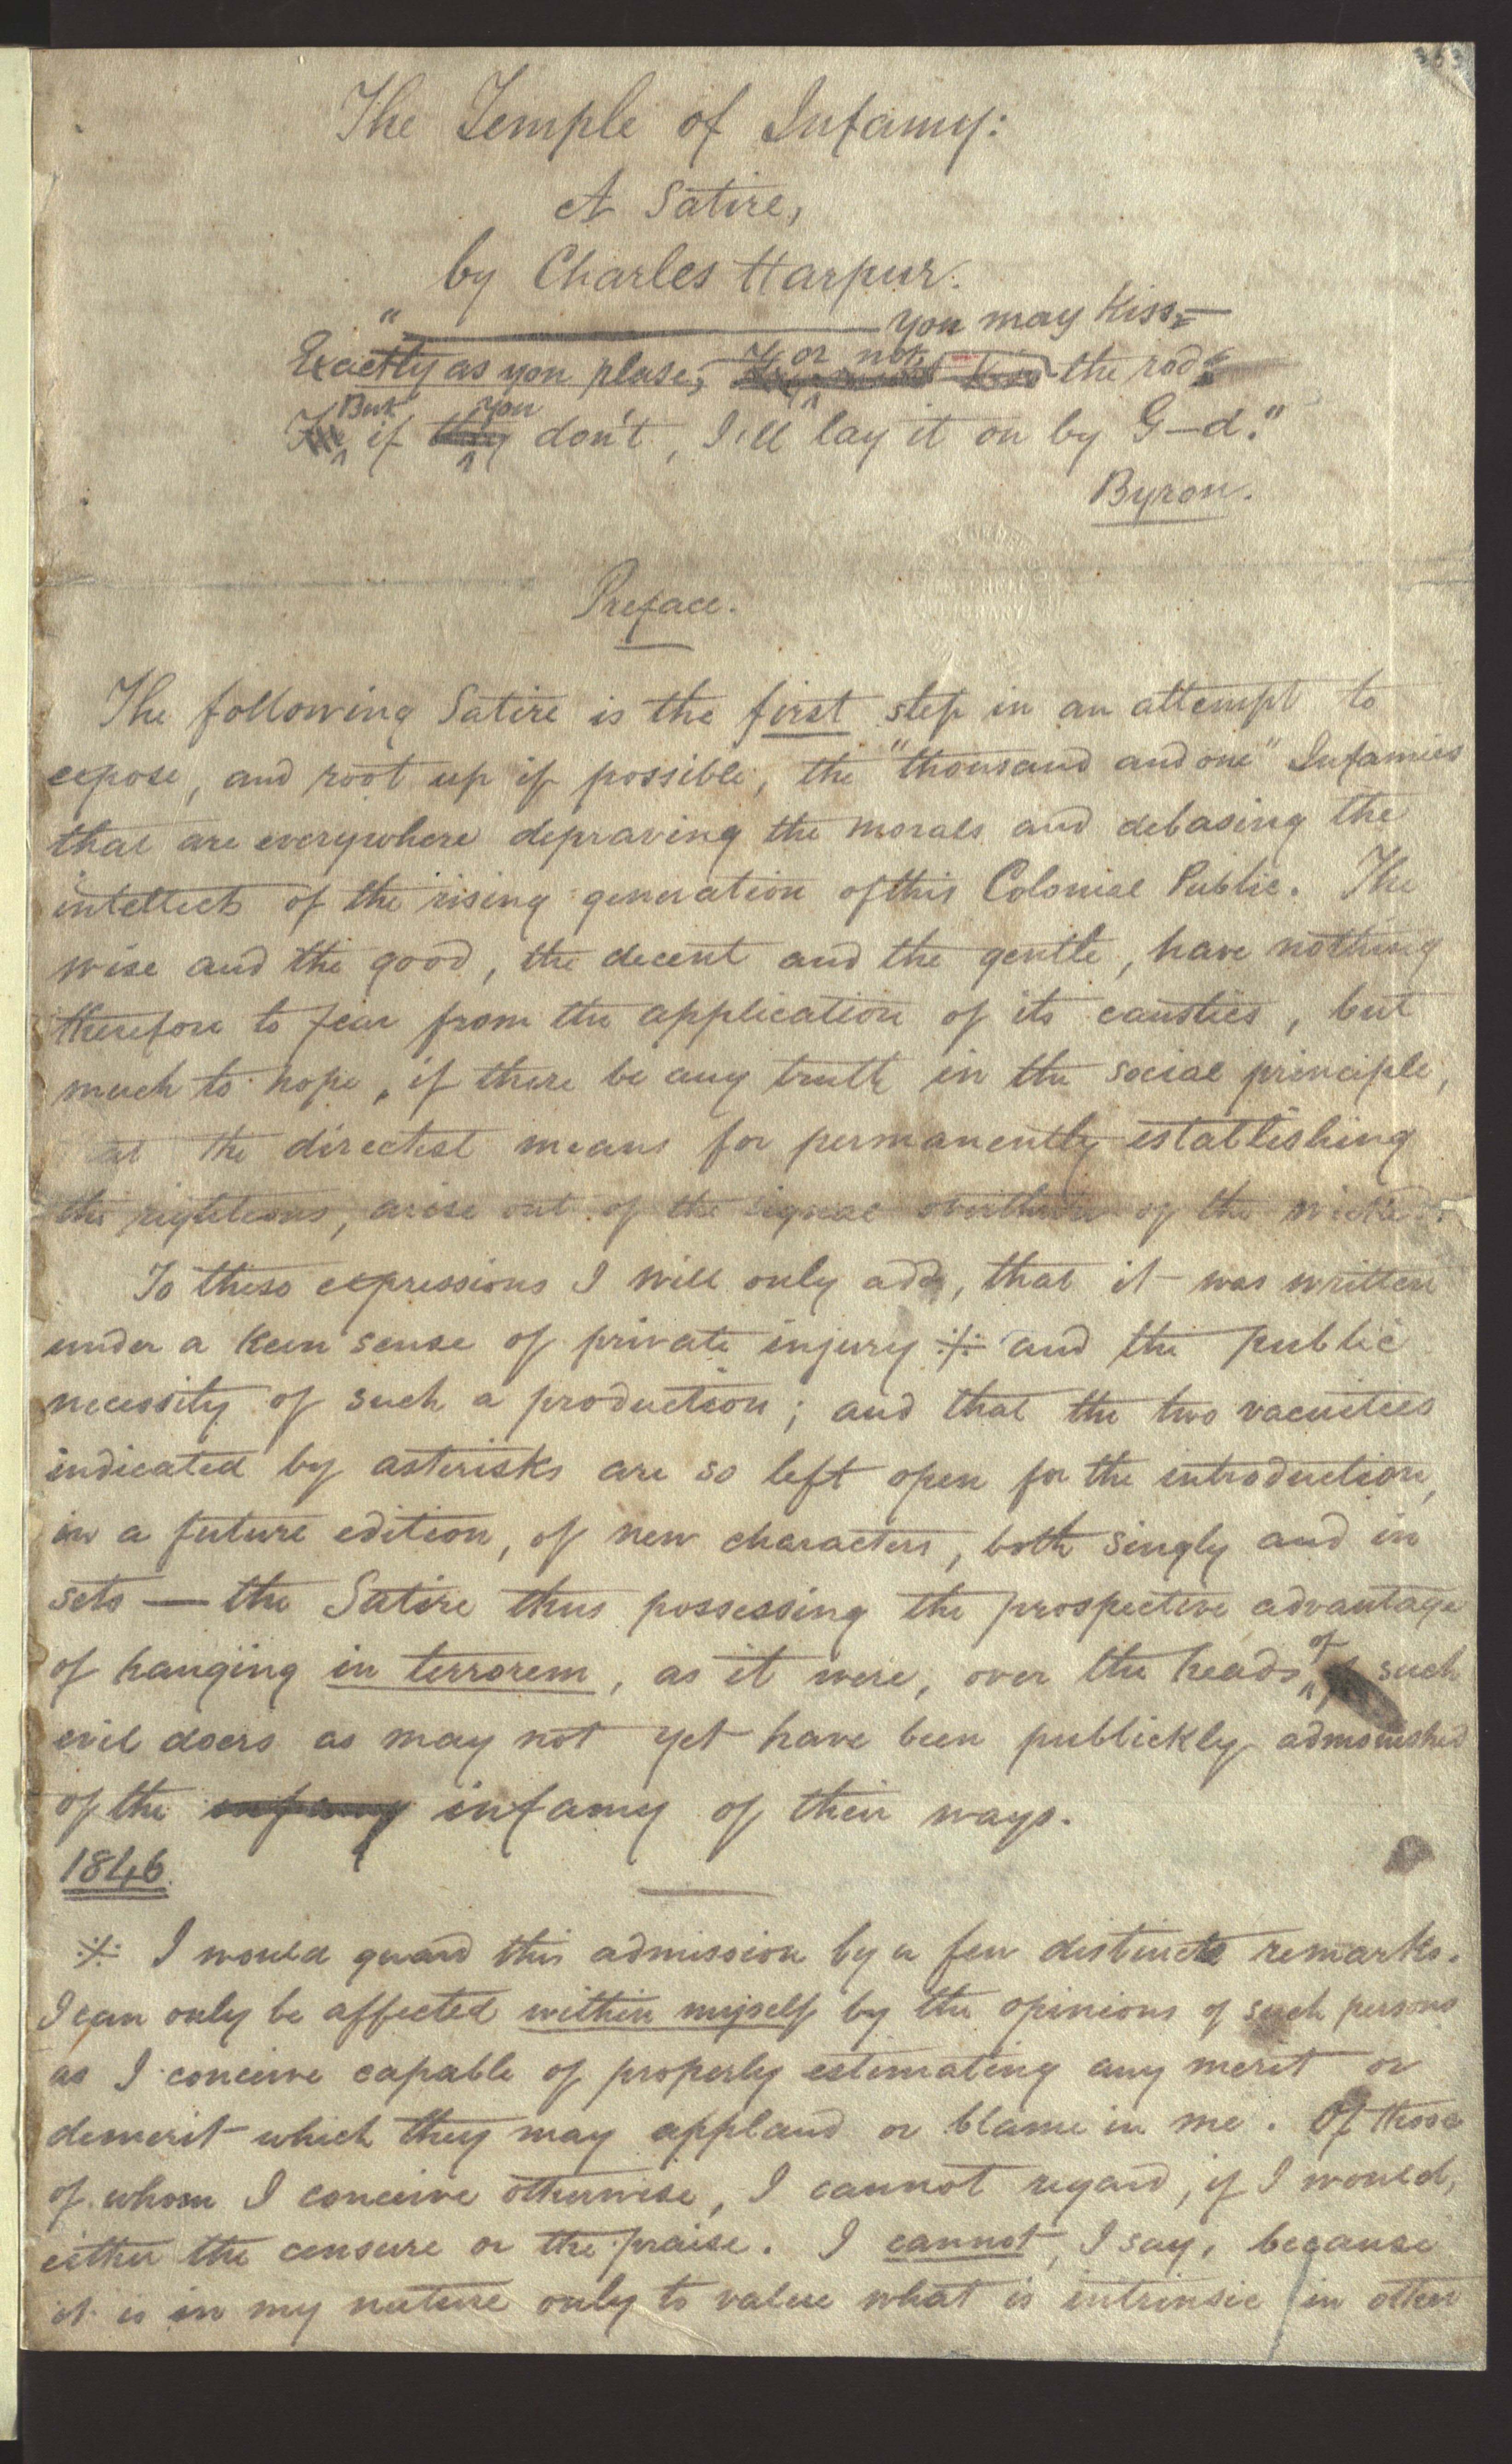 353
The Temple of Infamy:
A Satire,
by Charles Harpur.
" ——— You may Kiss
Exactly as you please, or not, the rod
But if you don't, I'll lay it on by G—d."
Byron.
Preface.
The following Satire is the first step in an attempt to
expose, and root up if possible, the "thousand and one" Infamies
that are everywhere depraving the morals and debasing the
intellect of the rising generation of this Colonial Public. The
wise and the good, the decent and the gentle, have nothing
therefore to fear from the application of its caustics, but
much to hope, if there be any truth in the social principle,
the directest means for permanently establishing
the righteous, arise out of the signal overthrow of the wicked.
To these expressions I will only add, that it was written
under a keen sense of private injury ※ and the public
necessity of such a production; and that the two vacuities
indicated by asterisks are so left open for the introduction,
in a future edition, of new characters, both singly and in
sets — the Satire thus possessing the prospective advantage
of hanging in terrorem, as it were, over the heads of such
evil doers as may not yet have been publickly admonished
of the infamy infamy of their ways.
1846.
※ I would guard this admission by a few distinct remarks.
I can only be affected within myself by the opinions of such persons
as I conceive capable of properly estimating any merit or
demerit which they may applaud or blame in me. Of those
of whom I conceive otherwise, I cannot regard, if I would,
either the censure or the praise. I cannot, I say, because
it is in my nature only to value what is intrinsic in other